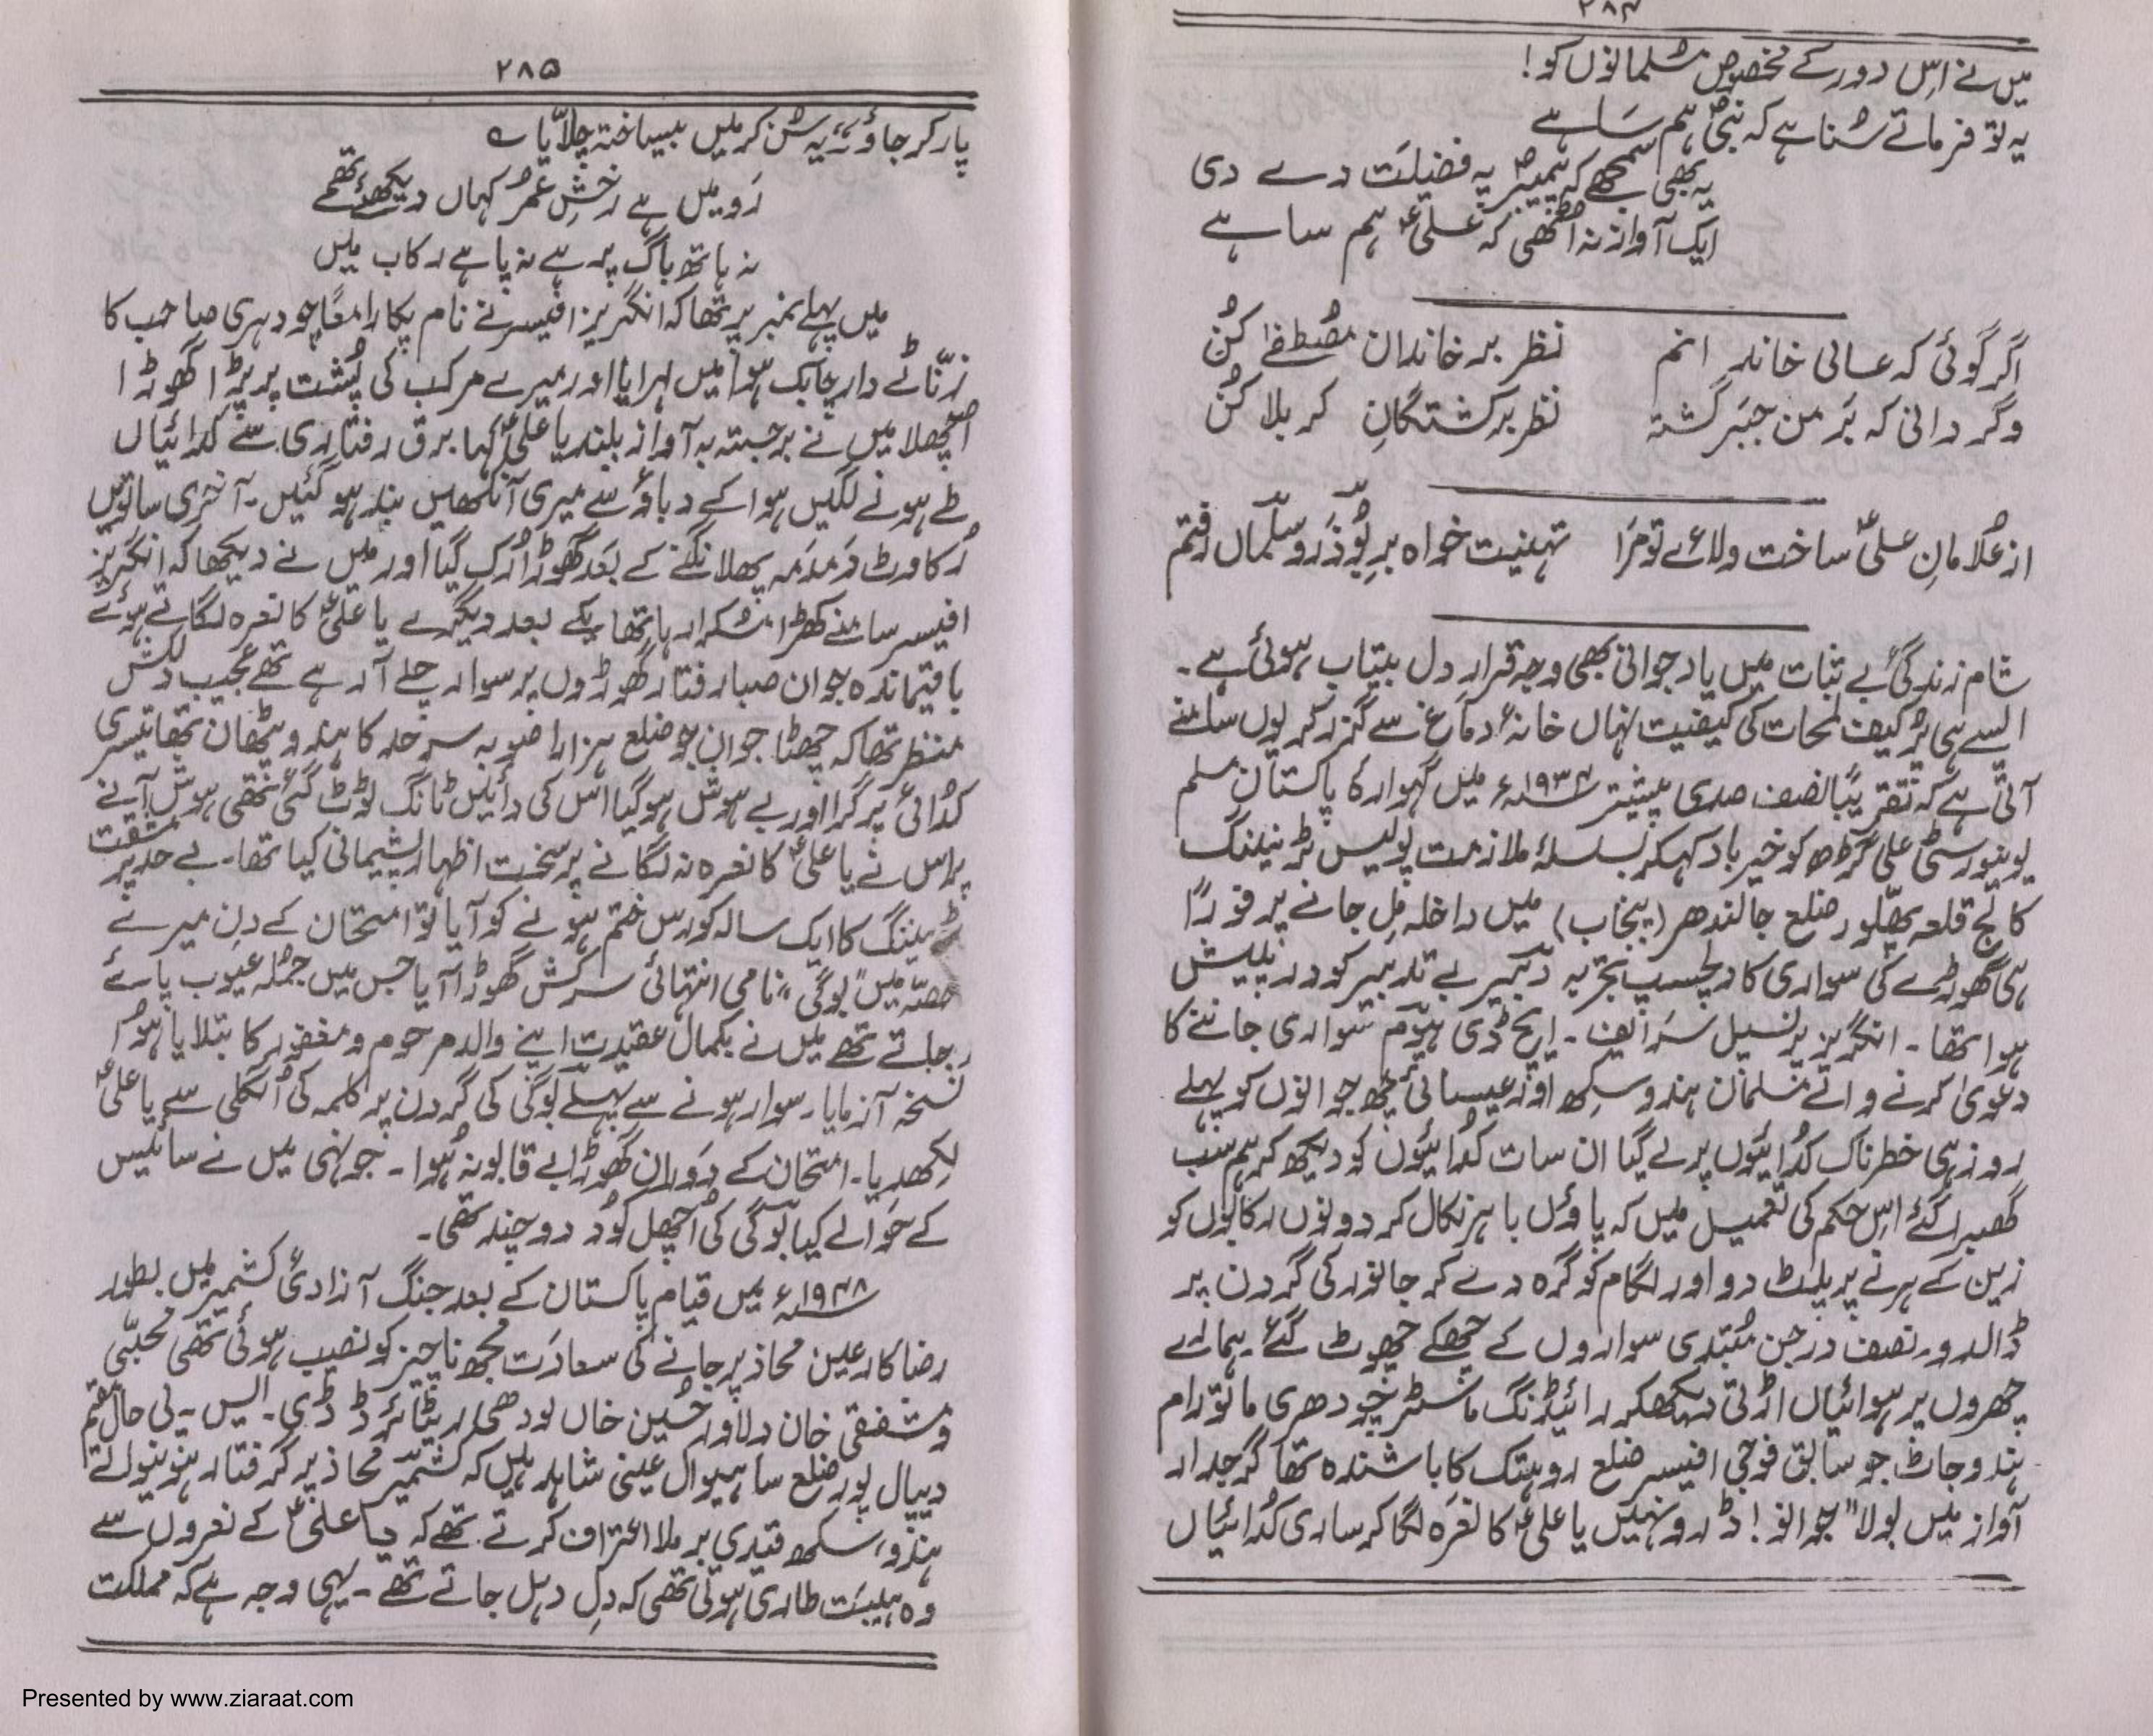 ۲۸۴
میں نے اس دور کے مخصوص مسلمانوں کو!
یہ تو فرماتے سُنا ہے کہ نبیؐ ہم سَا ہے
یہ بھی سمجھے کہ پیمبرؐ پہ فضیلَت دے دی
ایک آواز نہ اُٹھی کہ علیؑ ہم سا ہے
اگر گوئی کہ عالی خاندانم نظر بر خاندان مصُطفےٰ کُن
وگر دانی کہ بَر من جبَر گشتہ نظر بر کشتگانِ کربلا کُن
از غلامانِ علیؑ ساخت ولائے تو مَرا تہنیت خواہ برِ بُوذَر و سلّماں رفتم
شام زندگیٔ بے ثبات میں یاد جوانی بھی وجہ قرارِ دل بیتاب ہوئی ہے۔
ایسے ہی پُر کیف لمحات کی کیفیت نہاں خانۂ دماغ سے گزر کر یوں سامنے
آتی ہے کہ تقریباً نصف صدی پیشتر ۱۹۳۴ء میں گہوارۂ پاکستان مسلم
یونیورسٹی علی گڑھ کو خیرباد کہکر بسلسلۂ ملازمت پولیس ٹریننگ
کالج قلعہ پھلّور ضلع جالندھر (پنجاب) میں داخلہ مِل جانے پر فوراً
ہی گھوڑے کی سواری کا دلچسپ تجربہ دبیر بے تدبیر کو درپیش
ہوا تھا۔ انگریز پرنسپل سَر ایف۔ ایچ ڈی ہیّوم سواری جاننے کا
دعویٰ کرنے والے مسُلمان ہندو سِکھ اور عیسائی چھ جوانوں کو پہلے
روز ہی خطرناک کُدائیوں پر لے گیا ان سات کُدائیوں کو دیکھ کر ہم سب
گھبرا گئے اس حکم کی تعمیل میں کہ پاوٴں باہر نکال کر دونوں رکابوں کو
زین کے ہرنے پر پلٹ دو اور لگام کو گرہ دے کر جانور کی گردن پر
ڈالدو۔ نصف درجن مُبتدی سواروں کے چھکے چھوٹ گئے ہمارے
چہروں پر ہوائیاں اُڑتی دیکھکر رائیڈنگ ماسٹر چودھری ماتورام
ہندو جاٹ جو سابق فوجی افیسر ضلع روہتک کا باشندہ تھا گرجدار
آواز میں بولا "جوانو! ڈرو نہیں یا علیؑ کا نعرَہ لگا کر ساری کُدائیاں
۲۸۵
پار کر جاوٴ" یہ سُن کر میں بیساختہ چلاّیا ے
رَو میں ہے رخشِ عمرُ کہاں دیکھئے تھمے
نہ ہاتھ باگ پر ہے نہ پا ہے رکاب میں
میں پہلے نمبر پر تھا کہ انگریز افیسر نے نام پکارا معًا چودہری صاحب کا
زنّاٹے دار چابک ہوا میں لہرایا اور میرے مرکب کی پُشت پر پڑا گھوڑا
اُچھلا میں نے برجستہ بہ آواز بلند یا علیؑ کہا برق رفتاری سے کدائیاں
طے ہونے لگیں ہوا کے دباوٴ سے میری آنکھیں بند ہو گئیں۔ آخری ساتویں
رُکاوٹ دَمدَمہ پھلانگنے کے بعَد گھوڑا رُک گیا اور میں نے دیکھا کہ انگریز
افیسر سامنے کھڑا مُسکرا رہا تھا یکے بعد دیگرے یا علیؑ کا نعرہ لگاتے ہوئے
باقیماندہ جوان صبا رفتار گھوڑوں پر سوار چلے آ رہے تھے عجیب دلکش
منظر تھا کہ چھٹا جوان جو ضلع ہزارا صوبہ سرحد کا ہندو پٹھان تھا تیسری
کدُائی پر گرا اور بے ہوش ہو گیا اس کی دائیں ٹانگ ٹوٹ گئی تھی ہوش آنے
پر اس نے یا علیؑ کا نعرہ نہ لگانے پر سخت اظہار پشیمانی کیا تھا۔ بے حد پُر مشقت
ٹریننگ کا ایک سالہ کورس ختم ہونے کو آیا تو امتحان کے دن میرے
حصّہ میں "بوگی" نامی انتہائی سرکش گھوڑا آیا جس میں جمُلہ عیوب پائے
جاتے تھے میں نے بکمال عقیدت اپنے والد مرحوم و مغفور کا بتلایا ہوا
نسخہ آزمایا۔ سوار ہونے سے پہلے بوگی کی گردن پر کلمہ کی اُنگلی سے یا علیؑ
لکھدیا۔ امتحان کے دَوران گھوڑا بے قابو نہ ہُوا۔ جونہی میں نے سائیس
کے حوَالے کیا بوگی کی اُچھل کُود دو چند تھی۔
۱۹۴۸ء میں قیام پاکستان کے بعد جنگ آزادیٔ کشمیر میں بطور
رضاکار عین محاذ پر جانے کی سعادَت مجھ ناچیز کو نصیب ہوئی تھی محبّی
و مشفقی خان دلاور حُسین خاں لودھی ریٹائرڈ ڈی۔ ایس۔ پی حال مقیم
دیپال پور ضلع ساہیوال عینی شاہد ہیں کہ کشمیر محاذ پر گرفتار ہونیوالے
ہندو، سکھ قیدی برملا اعتراف کرتے تھے کہ یا علیؑ کے نعروں سے
وہ ہیبَت طاری ہوتی تھی کہ دِل دہل جاتے تھے۔ یہی وجہ ہے کہ مملکت
Presented by www.ziaraat.com